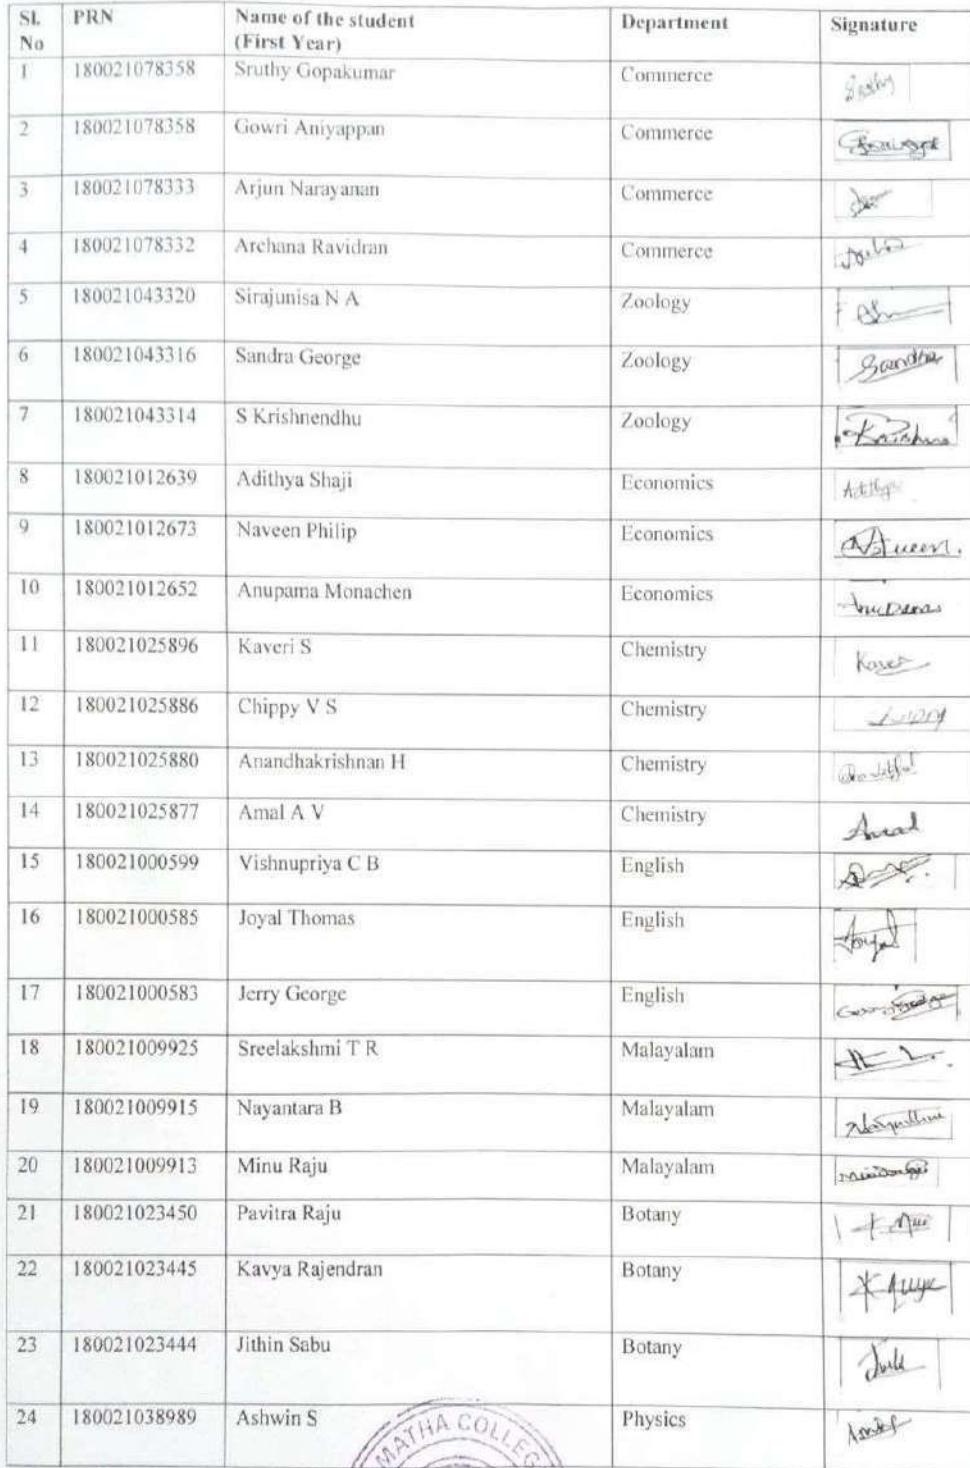 Sl. No PRN Name of the student (First Year) Department Signature
1 180021078358 Sruthy Gopakumar Commerce Sruthy
2 180021078358 Gowri Aniyappan Commerce
3 180021078333 Arjun Narayanan Commerce
4 180021078332 Archana Ravidran Commerce
5 180021043320 Sirajunisa N A Zoology
6 180021043316 Sandra George Zoology Sandra
7 180021043314 S Krishnendhu Zoology
8 180021012639 Adithya Shaji Economics Adithya
9 180021012673 Naveen Philip Economics Naveen.
10 180021012652 Anupama Monachen Economics
11 180021025896 Kaveri S Chemistry
12 180021025886 Chippy V S Chemistry
13 180021025880 Anandhakrishnan H Chemistry
14 180021025877 Amal A V Chemistry Amal
15 180021000599 Vishnupriya C B English
16 180021000585 Joyal Thomas English Joyal
17 180021000583 Jerry George English
18 180021009925 Sreelakshmi T R Malayalam
19 180021009915 Nayantara B Malayalam
20 180021009913 Minu Raju Malayalam
21 180021023450 Pavitra Raju Botany
22 180021023445 Kavya Rajendran Botany
23 180021023444 Jithin Sabu Botany
24 180021038989 Ashwin S Physics
MATHA COLLEG